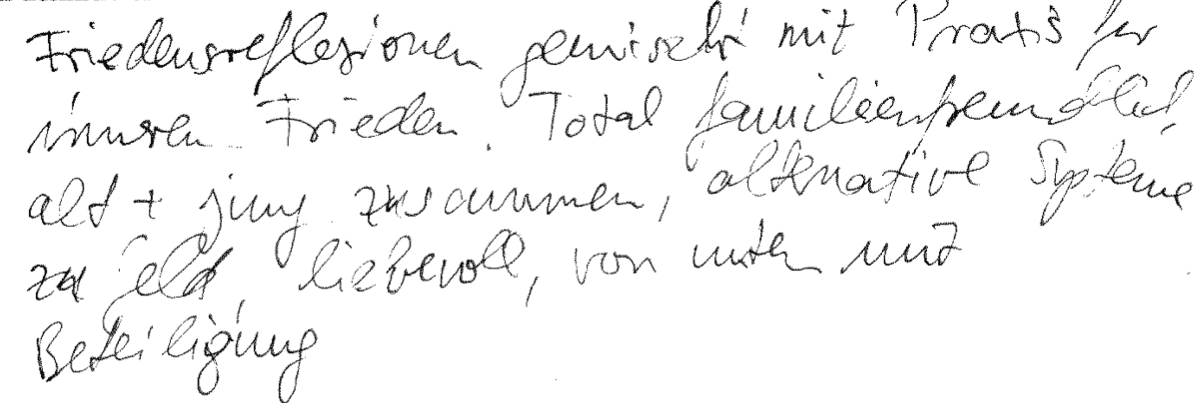 Friedensreflexionen gemischt mit Praxis für
inneren Frieden. Total familienfreundlich,
alt + jung zusammen, alternative Systeme
zu Geld, liebevoll, von unten mit
Beteiligung